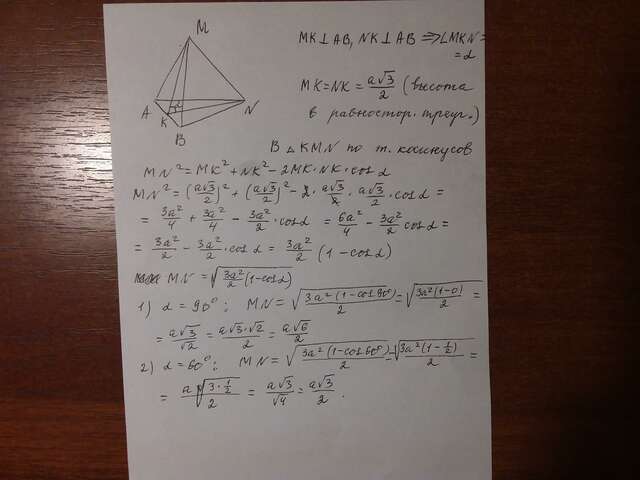 M
A
K
B
N
α
MK⊥AB, NK⊥AB ⇒∠MKN=
=α
MK=NK = a√3/2 (высота
в равностор. треуг.)
В △KMN по т. косинусов
MN² = MK² + NK² - 2MK·NK·cosα
MN² = (a√3/2)² + (a√3/2)² - 2·a√3/2·a√3/2·cosα =
= 3a²/4 + 3a²/4 - 3a²/2·cosα = 6a²/4 - 3a²/2 cosα =
= 3a²/2 - 3a²/2·cosα = 3a²/2 (1-cosα)
MN = √(3a²/2(1-cosα))
1) α=90°; MN = √(3a²(1-cos90°)/2) = √(3a²(1-0)/2) =
= a√3/√2 = a√3·√2/2 = a√6/2
2) α=60°; MN = √(3a²(1-cos60°)/2) = √(3a²(1-1/2)/2) =
= a√(3·1/2)/2 = a√3/√4 = a√3/2.